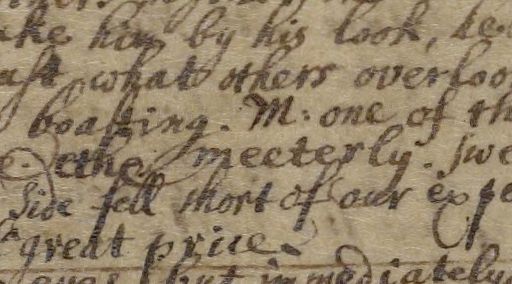 him by his look,
what others overloo
boasting. M: one of th
meeterly. Swe
Side fell short of our expe
great price.
but immediately